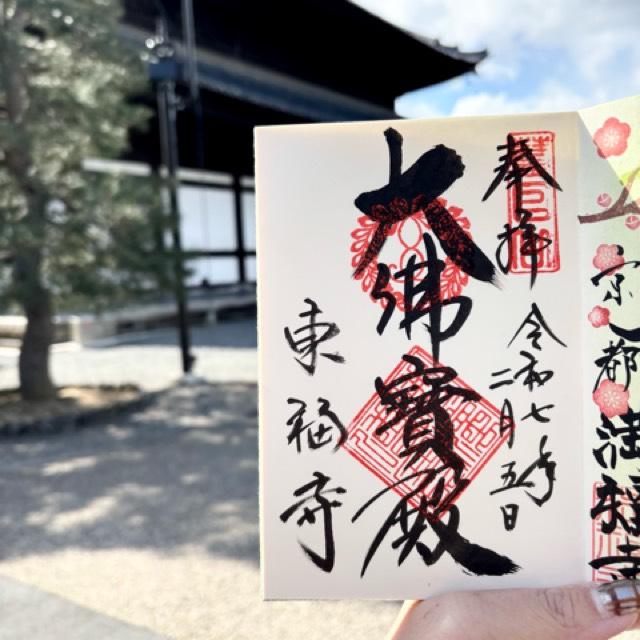 京都
奉拝
令和七年
二月五日
大佛寶殿
東福寺